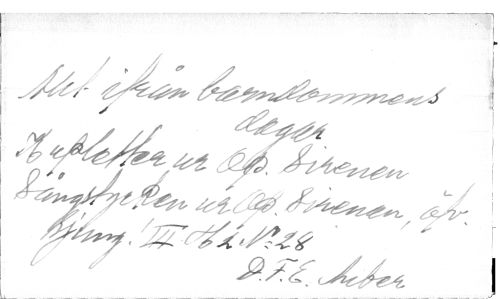 Alt ifrån barndommens
dagar
Kupletter ur Op. Sirenen
Sångstycken ur Op. Sirenen, öfv.
III H 2. No 28
D. F. E. Auber